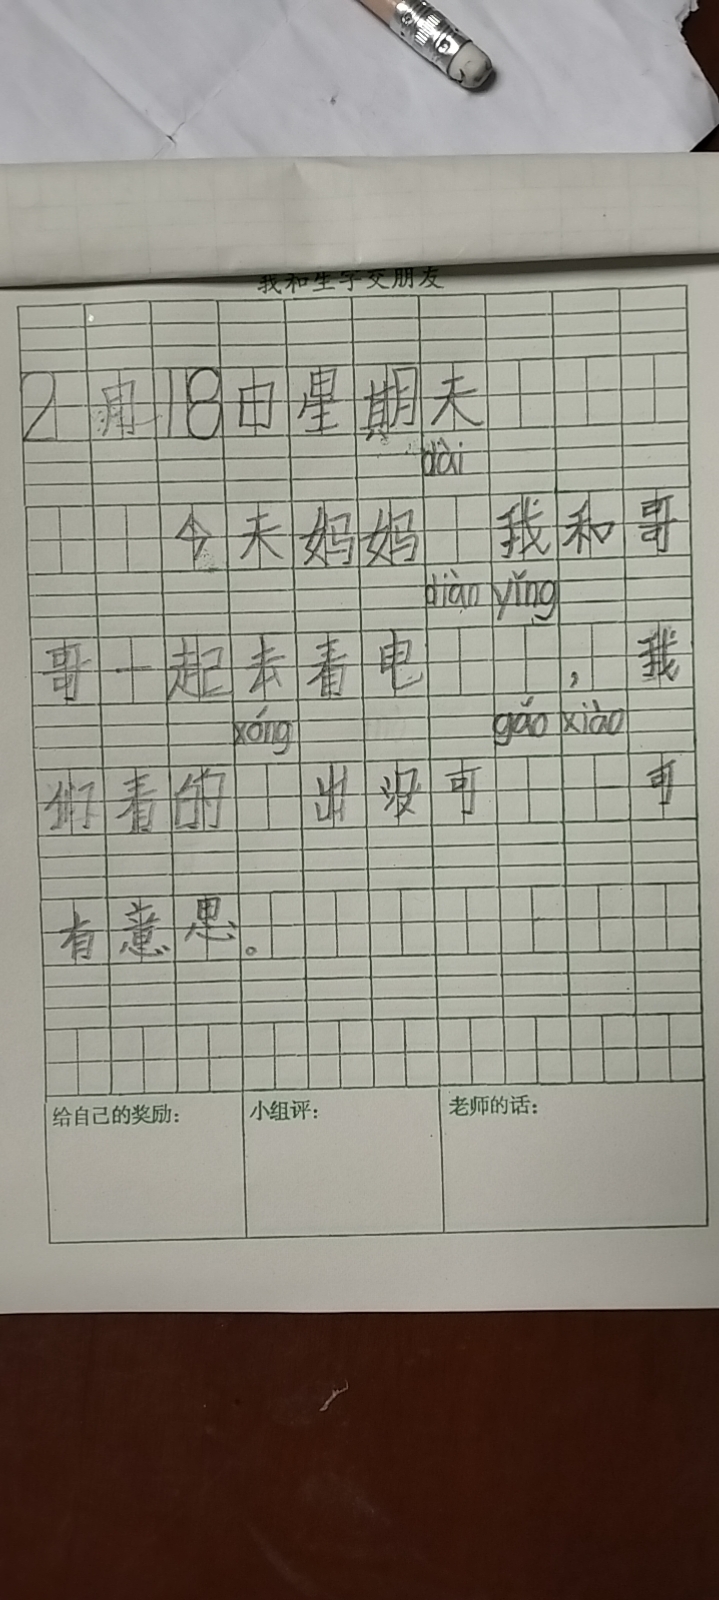 我和生字交朋友
2月18日星期天
dài
今天妈妈 我和哥
diàn yǐng
哥一起去看电 ，我
xóng gǎo xiào
们看的 出没可 可
有意思。
给自己的奖励：
小组评：
老师的话：